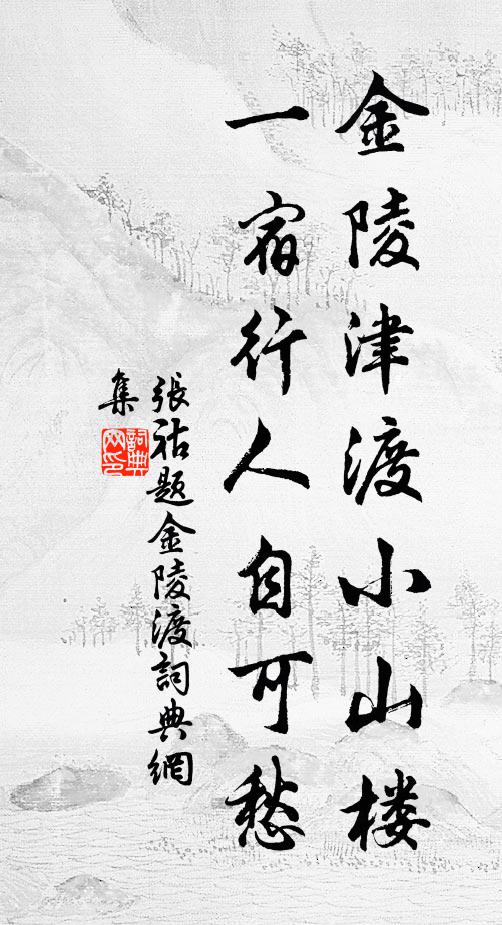 金陵津渡小山楼
一宿行人自可愁
張祜題金陵渡詞典網
集
詞典
网印